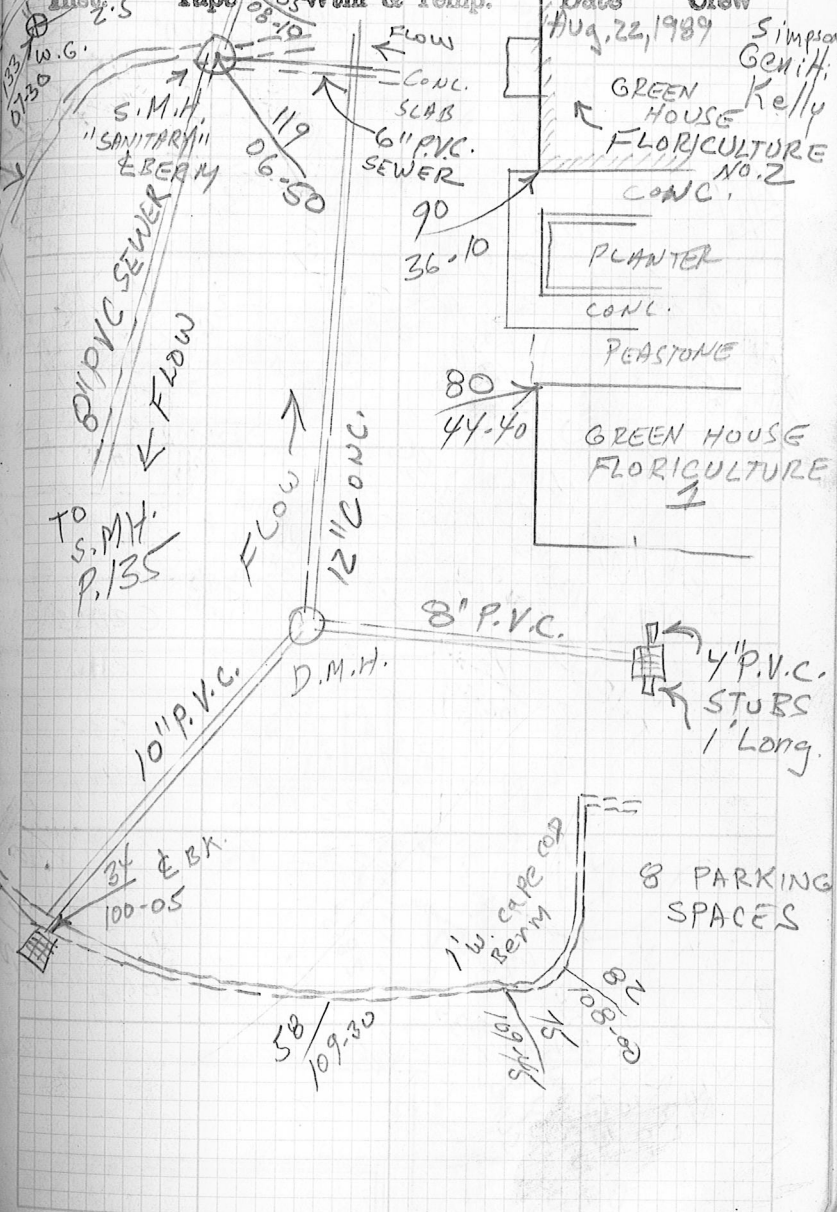 Tape
& Temp.
Date
Crew
Aug. 22, 1989
Simpson
Genith.
Kelly
2.5
08-19
133
07-30
W.G.
FLOW
CONC.
SLAB
S.M.H.
"SANITARY"
& BERM
119
06-50
6" P.V.C.
SEWER
GREEN
HOUSE
FLORICULTURE
NO. 2
CONC.
90
36-10
PLANTER
CONC.
PEASTONE
8" PVC SEWER
FLOW
80
44-40
GREEN HOUSE
FLORICULTURE
1
TO
S.M.H.
P. 135
FLOW
12" CONC.
8" P.V.C.
D.M.H.
4" P.V.C.
STUBS
1' Long.
10" P.V.C.
34
100-05
& BK.
1' W. CAPE COD
BERM
8 PARKING
SPACES
58
109-30
15
109-45
28
108-80